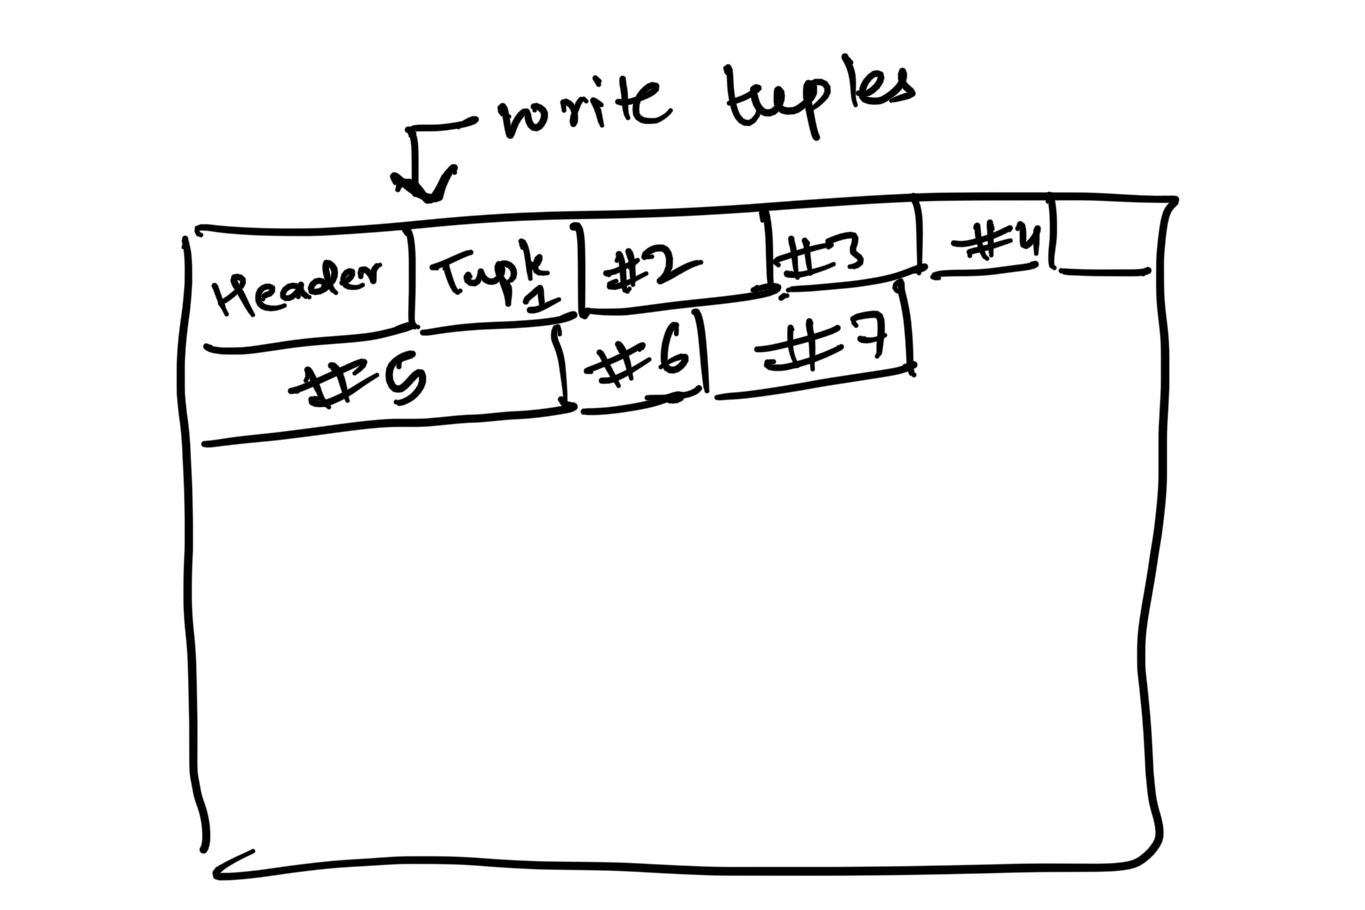 write tuples
Header Tuple 1 #2 #3 #4
#5 #6 #7